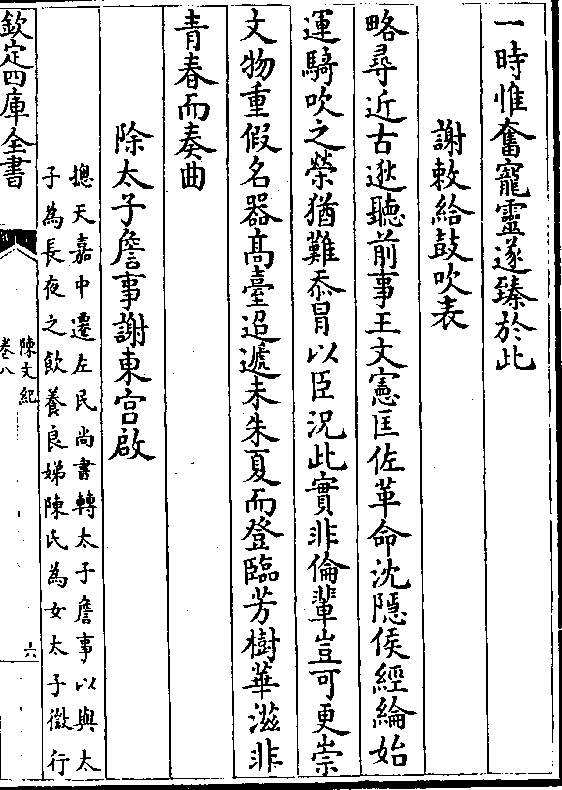 一時惟奮寵靈遂臻於此
謝敕給鼓吹表
略尋近古逖聽前事王文憲匡佐革命沈隱侯經綸始
運騎吹之榮猶難忝冒以臣況此實非倫輩豈可更崇
文物重假名器高臺迢遞未朱夏而登臨芳樹華滋非
青春而奏曲
除太子詹事謝東宫啟
摠天嘉中遷左民尚書轉太子詹事以與太
子為長夜之飲養良娣陳氏為女太子微行
欽定四庫全書
陳文紀
卷八
六